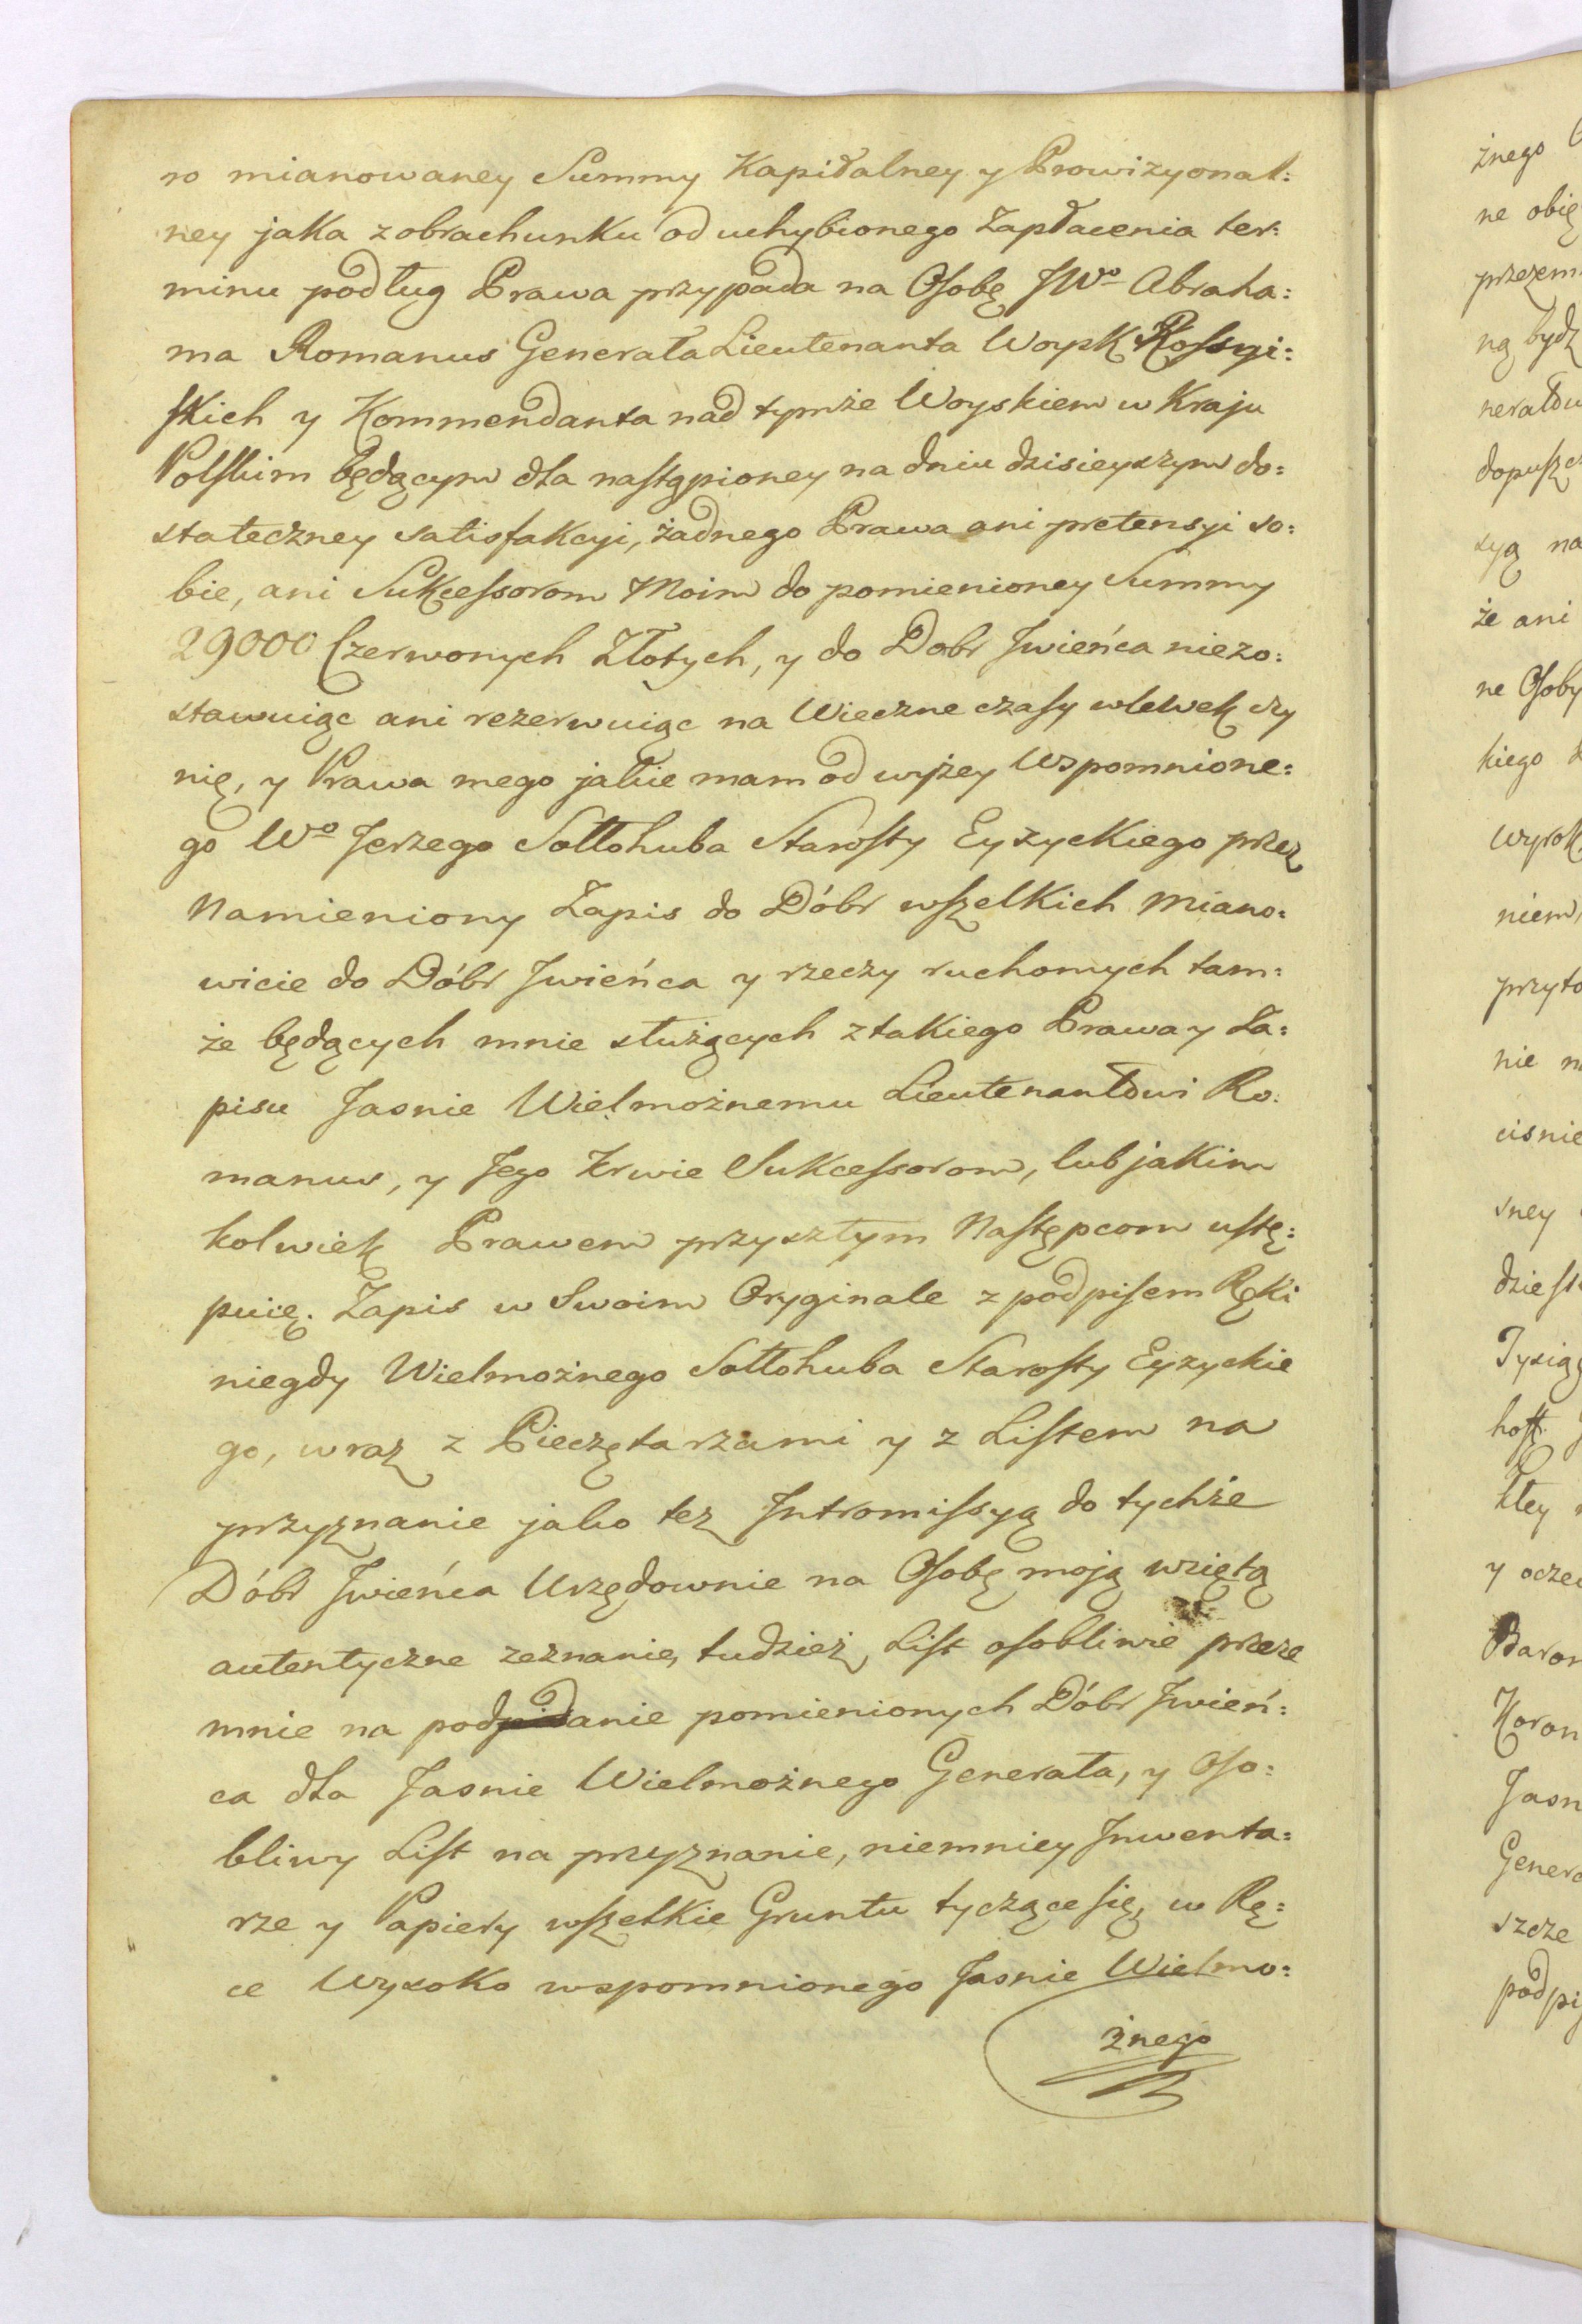 ro mianowaney Summy Kapitalney y Prowizyonal:
ney jaka z obrachunku od uchybionego Zapłacenia ter:
minu podług Prawa przypada na Osobę JWº Abraha:
ma Romanus Generała Lieutenanta Woysk Rossyi:
skich y Kommendanta nad tymże Woyskiem w Kraju
Polskim będącym dla nastąpioney na dniu dzisieyszym do:
stateczney satisfakcyi, żadnego Prawa ani pretensyi so:
bie, ani Sukcessorom Moim do pomienioney Summy
29000 Czerwonych Złotych, y do Dobr Iwieńca niezo:
stawuiąc ani rezerwuiąc na Wieczne czasy wlewek czy
nię, y Prawa mego jakie mam od wyżey Wspomnione:
go Wº Jerzego Sołłohuba Starosty Eyżyckiego przez
Namieniony Zapis do Dóbr wszelkich miano:
wicie do Dóbr Iwieńca y rzeczy ruchomych tam:
że będących mnie służących z takiego Prawa y Za:
pisu Jasnie Wielmożnemu Lieutenantowi Ro:
manus, y Jego Krwie Sukcessorom, lub jakim
kolwiek Prawem przyszłym Następcom ustę:
puię. Zapis w Swoim Oryginale z podpisem Ręki
niegdy Wielmożnego Sołłohuba Starosty Eyzyckie
go, wraz z Pieczętarzami y z Listem na
przyznanie jako tez Intromissyą do tychże
Dóbr Iwieńca Urzędownie na Osobę moją wziętą
autentyczne zeznanie, tudzież List osobliwie przeze
mnie na podanie pomienionych Dóbr Iwień:
ca dla Jasnie Wielmożnego Generała, y Oso:
bliwy List na przyznanie, niemniey Inwenta:
rze y Papiery wszelkie Gruntu tyczące się, w Rę:
ce Wysoko wspomnionego Jasnie Wielmo:
żnego
żnego
ne obię
przezem
ną bydź
dopuszcz
syą na
że ani
ne Osoby
kiego
Wyrok
niem,
przyto
nie
cisnie
sney
dziest
Tysiąc
y ocze
Baron
Koron
Jasn
Genera
szcze
podpi